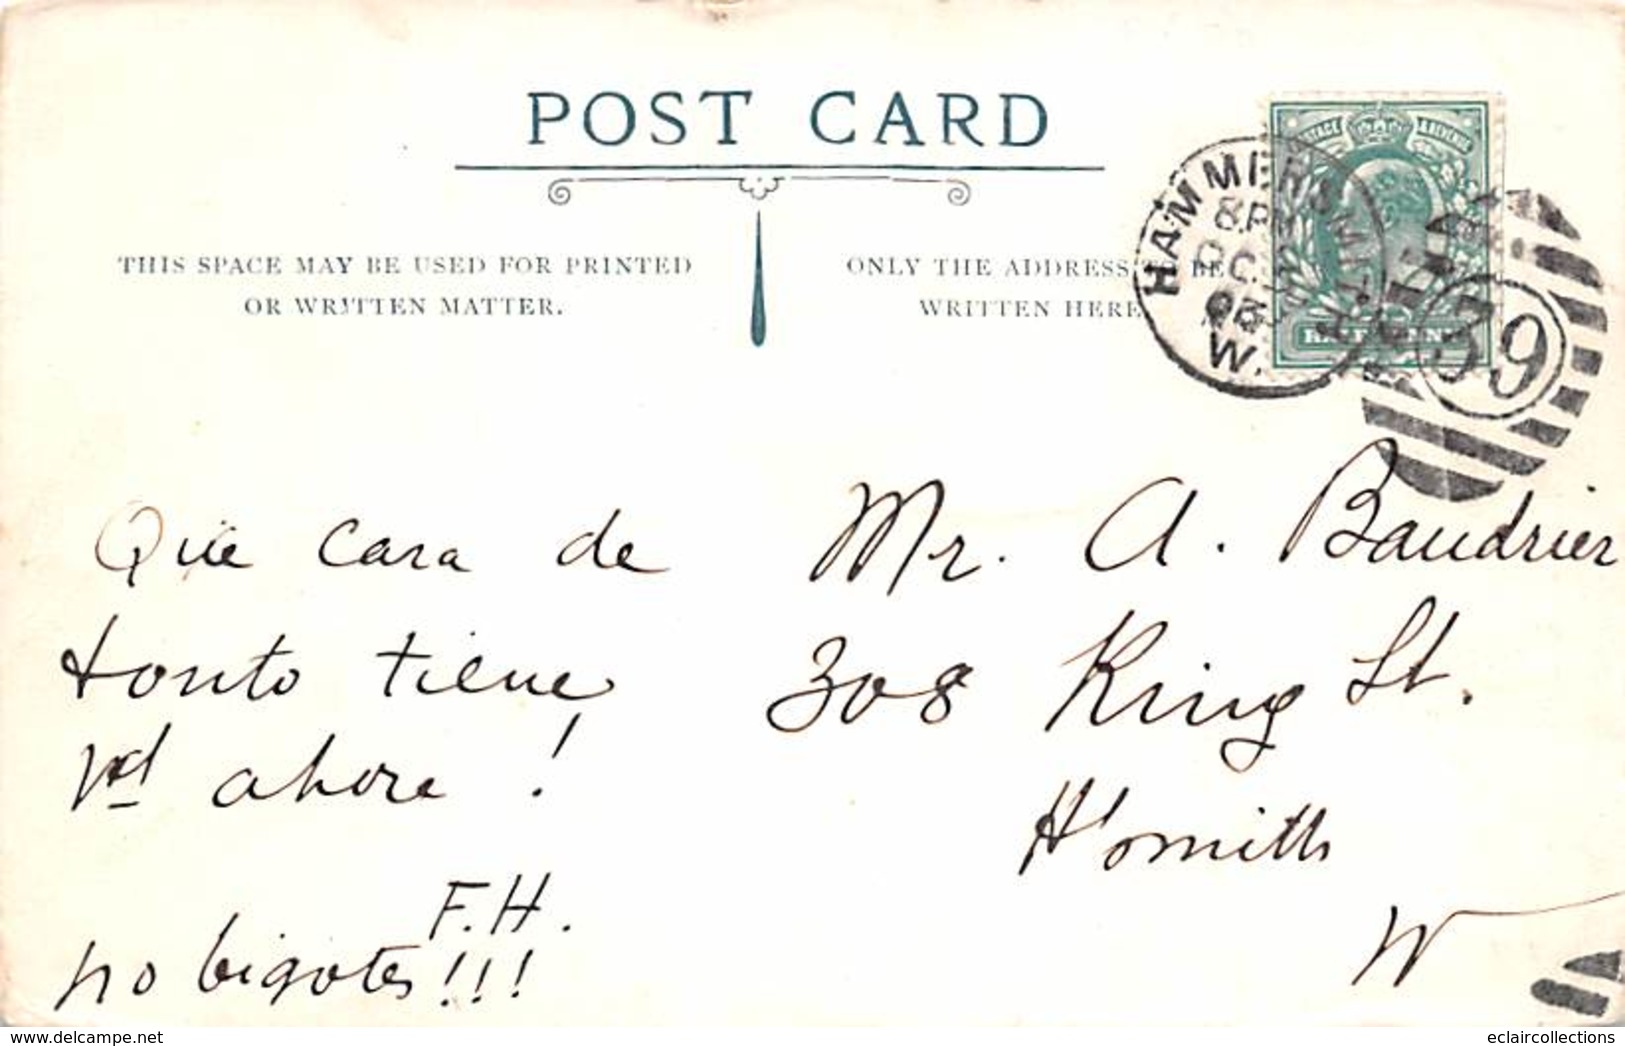 POST CARD
THIS SPACE MAY BE USED FOR PRINTED
OR WRITTEN MATTER.
ONLY THE ADDRESS TO BE
WRITTEN HERE
HAMMERSMITH
8 PM
OC
W.
59
Que cara de
tonto tiene
Vd ahora !
F.H.
no bigotes!!!
Mr. A. Baudrier
308 King St.
H'smith
W
www.delcampe.net
eclaircollections